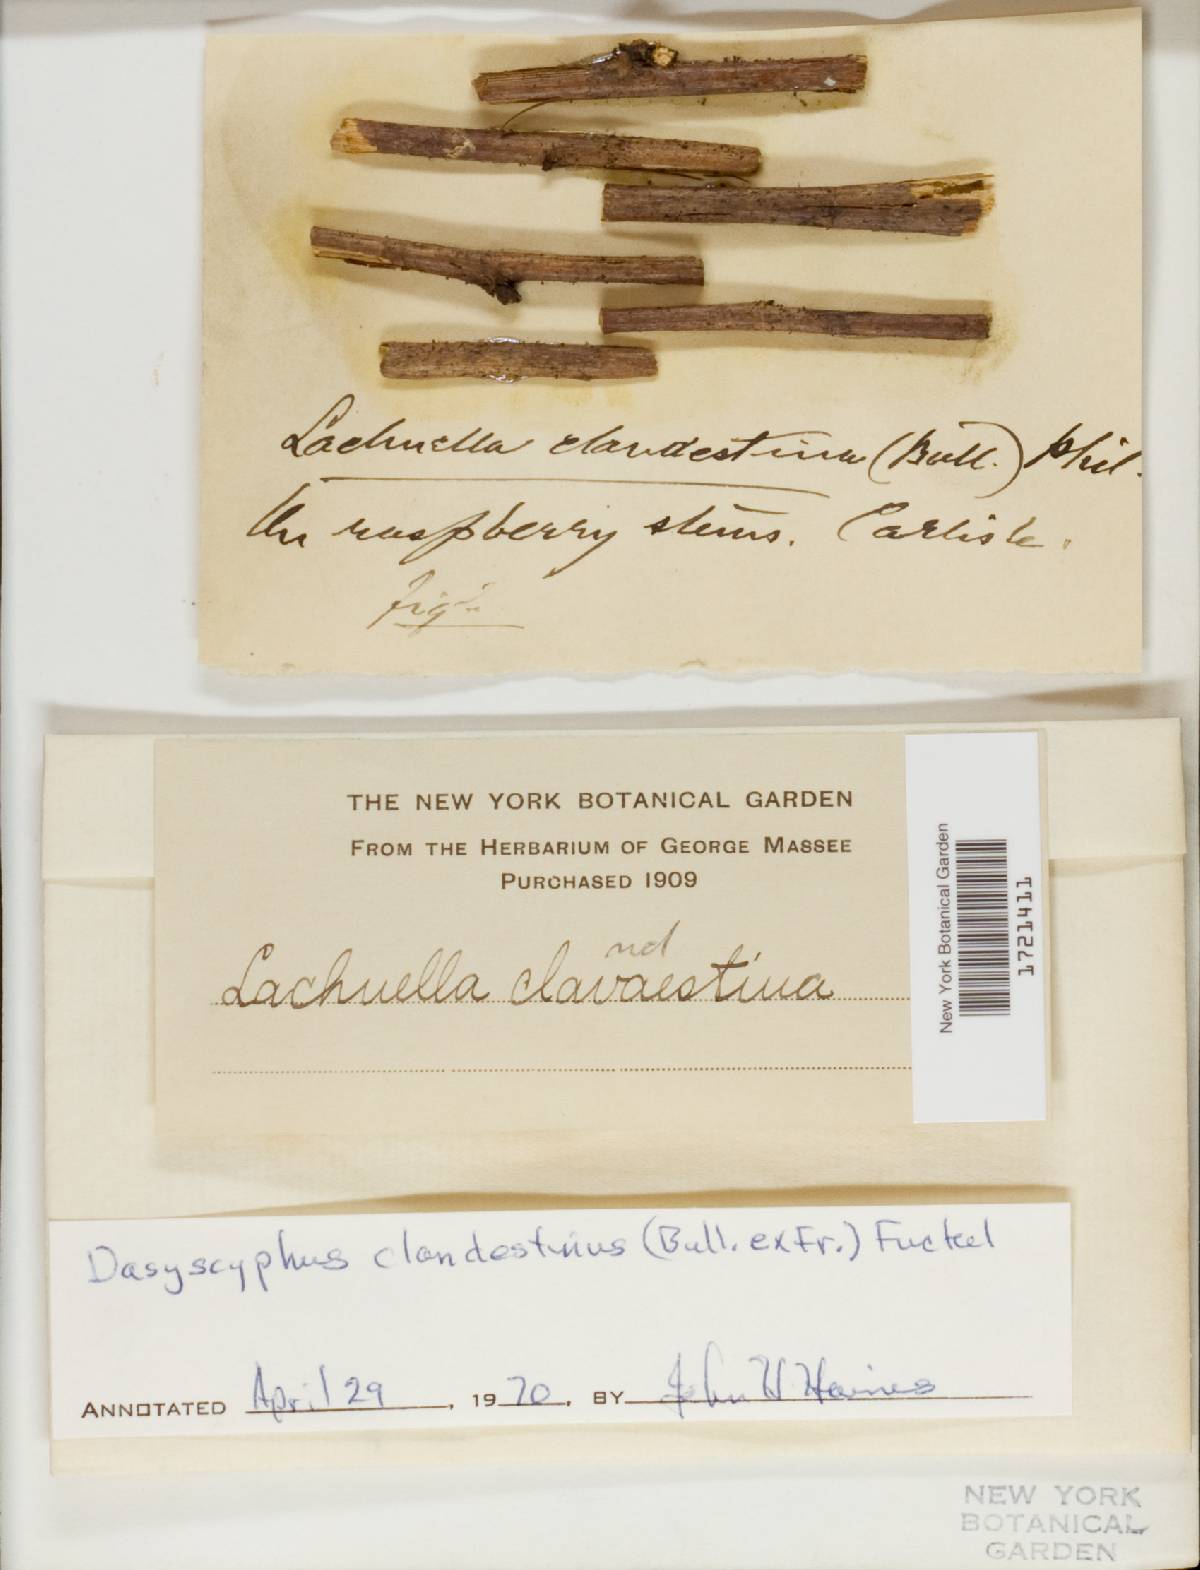 Lachnella clandestina (Bull.) Phil.
On raspberry stems. Carlisle.
fig.
THE NEW YORK BOTANICAL GARDEN
FROM THE HERBARIUM OF GEORGE MASSEE
PURCHASED 1909
nd
Lachnella clavdestina
New York Botanical Garden
1721411
Dasyscyphus clandestinus (Bull. ex Fr.) Fuckel
ANNOTATED April 29, 1970, BY John H Haines
NEW YORK
BOTANICAL
GARDEN